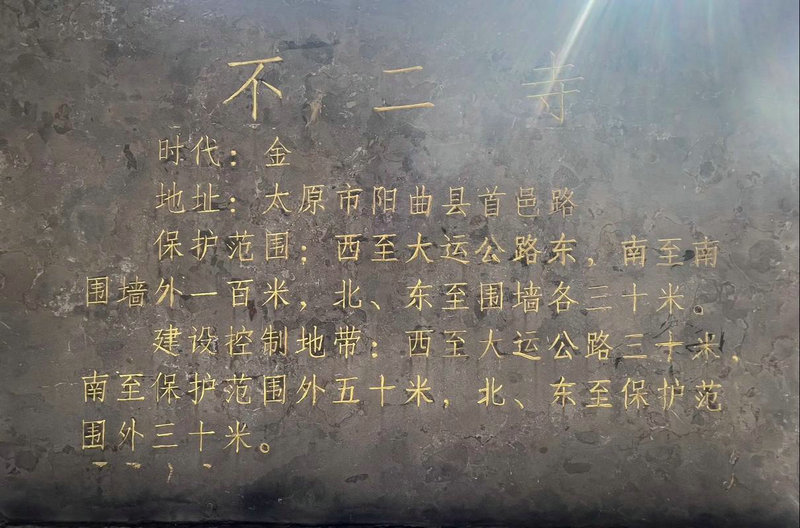 不二寺
时代：金
地址：太原市阳曲县首邑路
保护范围：西至大运公路东，南至南
围墙外一百米，北、东至围墙各三十米。
建设控制地带：西至大运公路三十米，
南至保护范围外五十米，北、东至保护范
围外三十米。